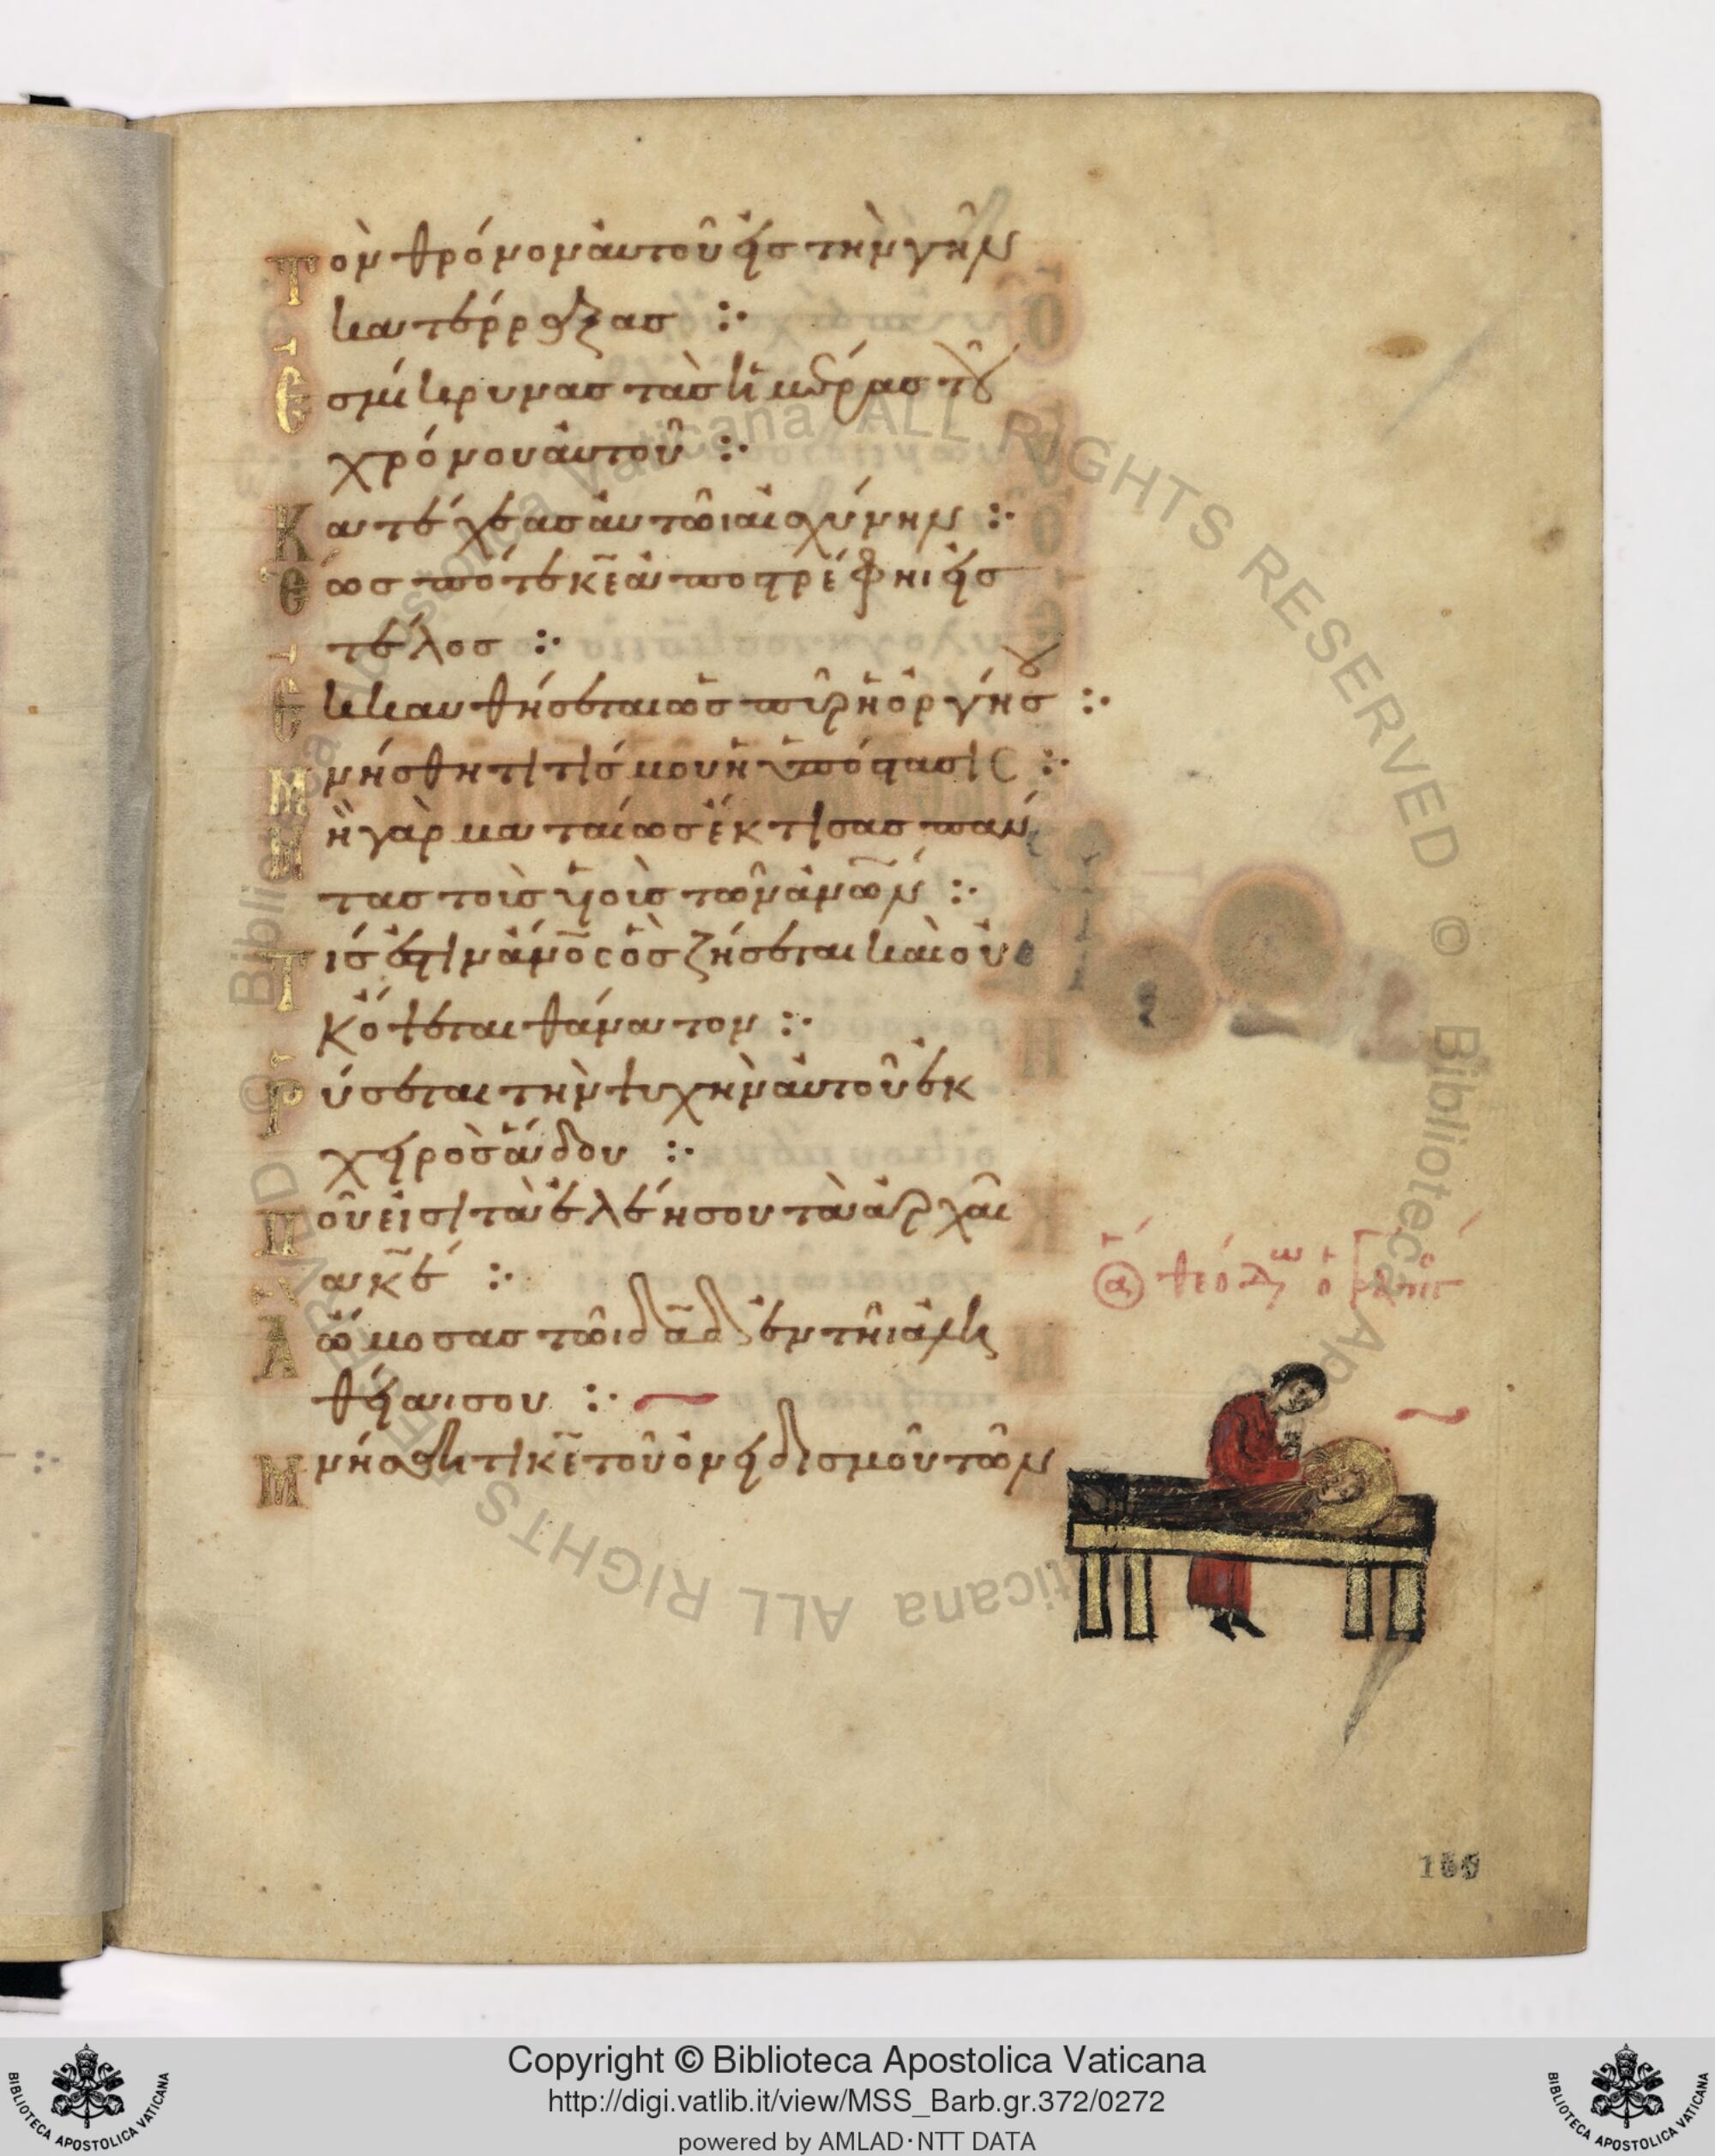 Τὸν θρόνον αὐτοῦ εἰς τὴν γῆν
κατέρραξας :·
Ἐσμίκρυνας τὰς ἡμέρας τοῦ
χρόνου αὐτοῦ :·
Κατέχεας αὐτῶι αἰσχύνην :·
Ἕως πότε κ̅ε̅ ἀποστρέφηι εἰς
τέλος :·
Ἐκκαυθήσεται ὡς πῦρ ἡ ὀργή σου :·
Μνήσθητι τίς μου ἡ ὑπόστασις :·
Μὴ γὰρ ματαίως ἔκτισας πάν
τας τοὺς υἱοὺς τῶν ἀν̅ω̅ν :·
Τίς ἐστιν ἀν̅ο̅ς ὃς ζήσεται καὶ οὐ
κ ὄψεται θάνατον :·
Ῥύσεται τὴν ψυχὴν αὐτοῦ ἐκ
χειρὸς ἅιδου :·
Ποῦ εἰσι τὰ ἐλέη σου τὰ ἀρχαῖ
α κ̅ε̅ :·
Ἃ ὤμοσας τῶι δ̅α̅δ̅ ἐν τῆι ἀλη
θείαι σου :·
Μνήσθητι κ̅ε̅ τοῦ ὀνειδισμοῦ τῶν
160
Copyright © Biblioteca Apostolica Vaticana
http://digi.vatlib.it/view/MSS_Barb.gr.372/0272
powered by AMLAD·NTT DATA
BIBLIOTECA APOSTOLICA VATICANA
BIBLIOTECA APOSTOLICA VATICANA
© Biblioteca Apostolica Vaticana ALL RIGHTS RESERVED
© Biblioteca Apostolica Vaticana ALL RIGHTS RESERVED